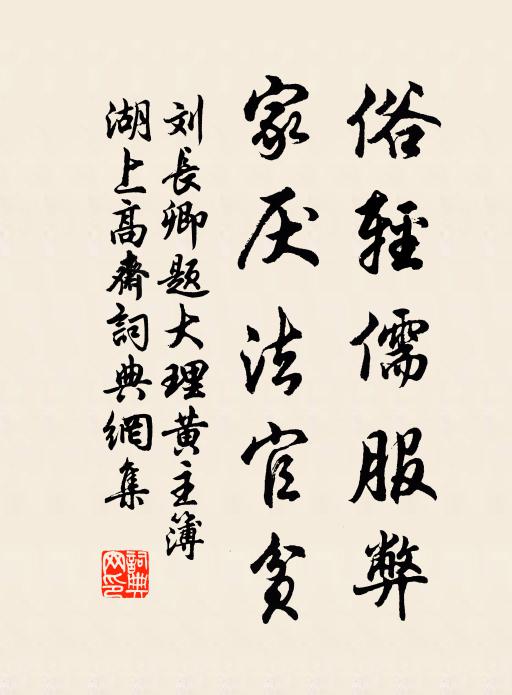 俗輕儒服弊
家厌法官貧
刘長卿題大理黄主簿
湖上高齋詞典網集
詞典網印